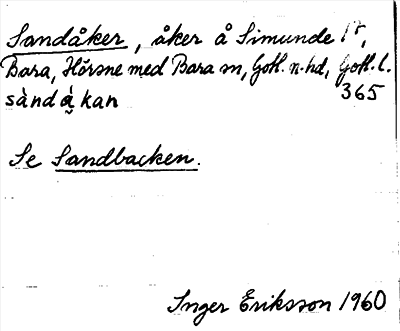 Sandåker, åker å Simunde 1⁸,
Bara, Hörsne med Bara sn, Gotl. n. hd, Gotl. l.
sàndà̰kan 365
Se Sandbacken.
Inger Eriksson 1960